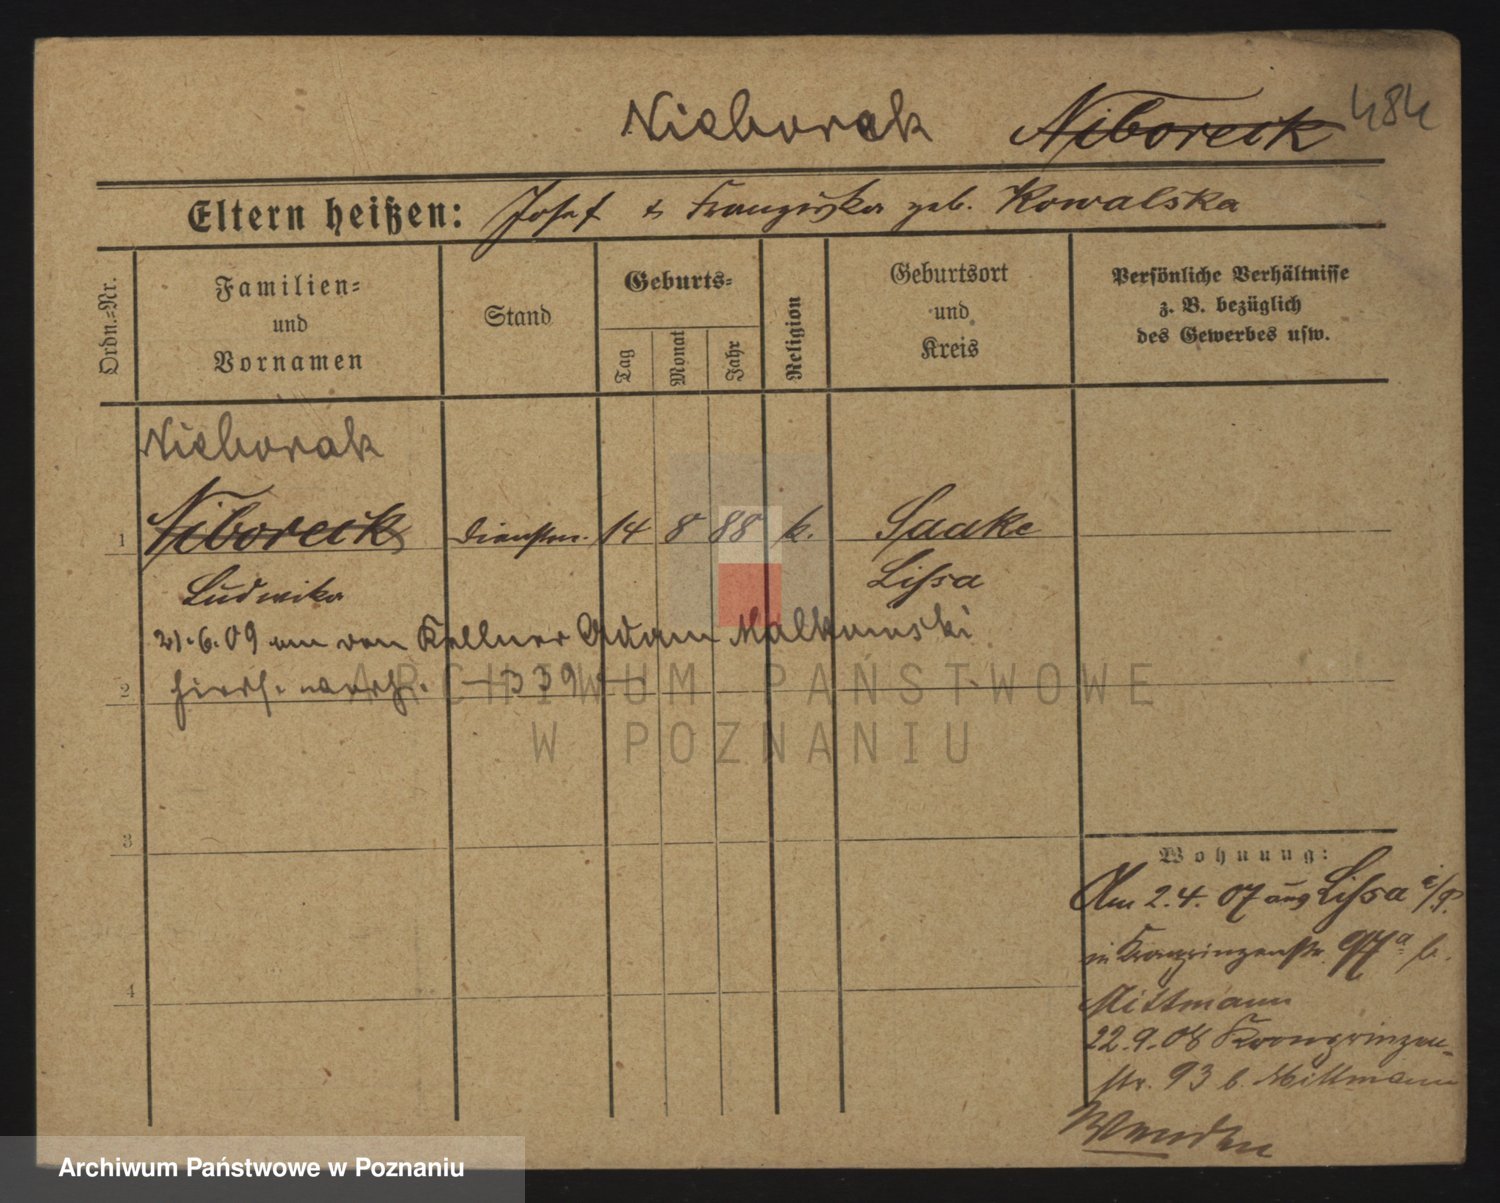 Nieborak Niboreck 484
Eltern heißen: Josef & Franziska geb. Kowalska
Ordn.-Nr.
Familien-
und
Vornamen
Stand
Geburts-
Tag
Monat
Jahr
Religion
Geburtsort
und
Kreis
Persönliche Verhältnisse
z. B. bezüglich
des Gewerbes usw.
Nieborak
1 Niboreck Dienstm. 14 8 88 k. Saake
Ludwika Lissa
21.6.09 an den Kellner Adam Malkowski
2 hiers. verh. 339
ARCHIWUM PAŃSTWOWE
W POZNANIU
3
4
Wohnung:
Am 2.4.07 aus Lissa i/P.
in Kronprinzenstr. 97a b.
Mittmann
22.9.08 Kronprinzen-
str. 93 b. Mittmann
Wenden
Archiwum Państwowe w Poznaniu